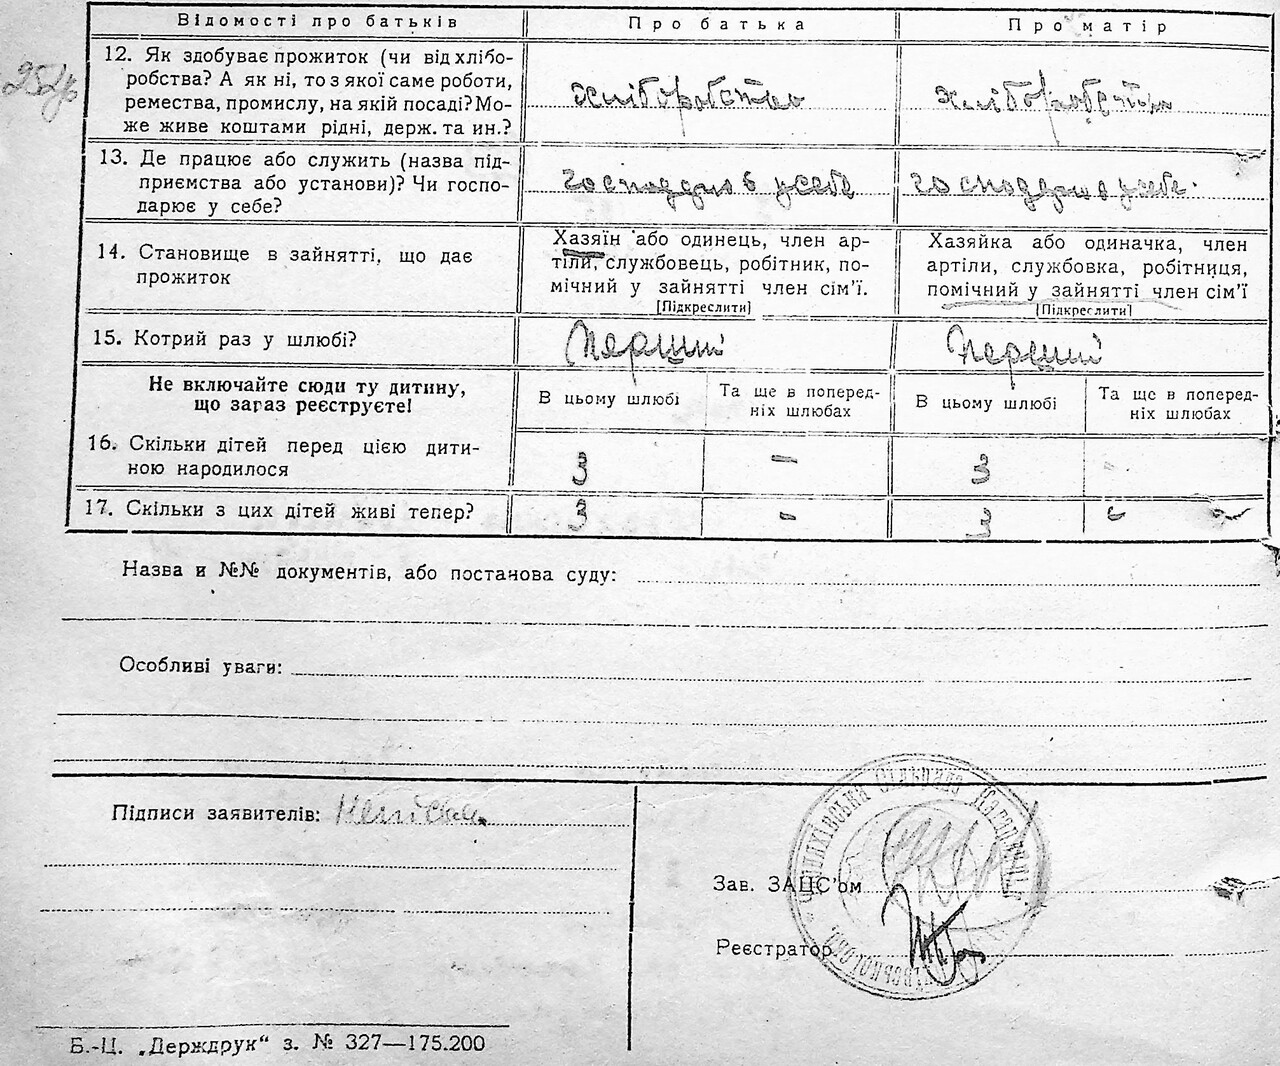 Відомості про батьків Про батька Про матір
252
12. Як здобуває прожиток (чи від хлібо-
робства? А як ні, то з якої саме роботи,
ремества, промислу, на якій посаді? Мо-
же живе коштами рідні, держ. та ин.?
хліборобство хліборобство
13. Де працює або служить (назва під-
приємства або установи)? Чи госпо-
дарює у себе?
у себе у себе.
14. Становище в зайнятті, що дає
прожиток
Хазяїн або одинець, член ар-
тіли, службовець, робітник, по-
мічний у зайнятті член сім’ї.
[Підкреслити]
Хазяйка або одиначка, член
артіли, службовка, робітниця,
помічний у зайнятті член сім’ї
[Підкреслити]
15. Котрий раз у шлюбі? Перший Перший
Не включайте сюди ту дитину,
що зараз реєструєте!
В цьому шлюбі
Та ще в поперед-
ніх шлюбах
В цьому шлюбі
Та ще в поперед-
ніх шлюбах
16. Скільки дітей перед цією дити-
ною народилося
3 - 3 -
17. Скільки з цих дітей живі тепер? 3 - 3 -
Назва и №№ документів, або постанова суду:
Особливі уваги:
Підписи заявителів:
Зав. ЗАЦС’ом
Реєстратор
Сільрада
Б.-Ц. „Держдрук“ з. № 327—175.200